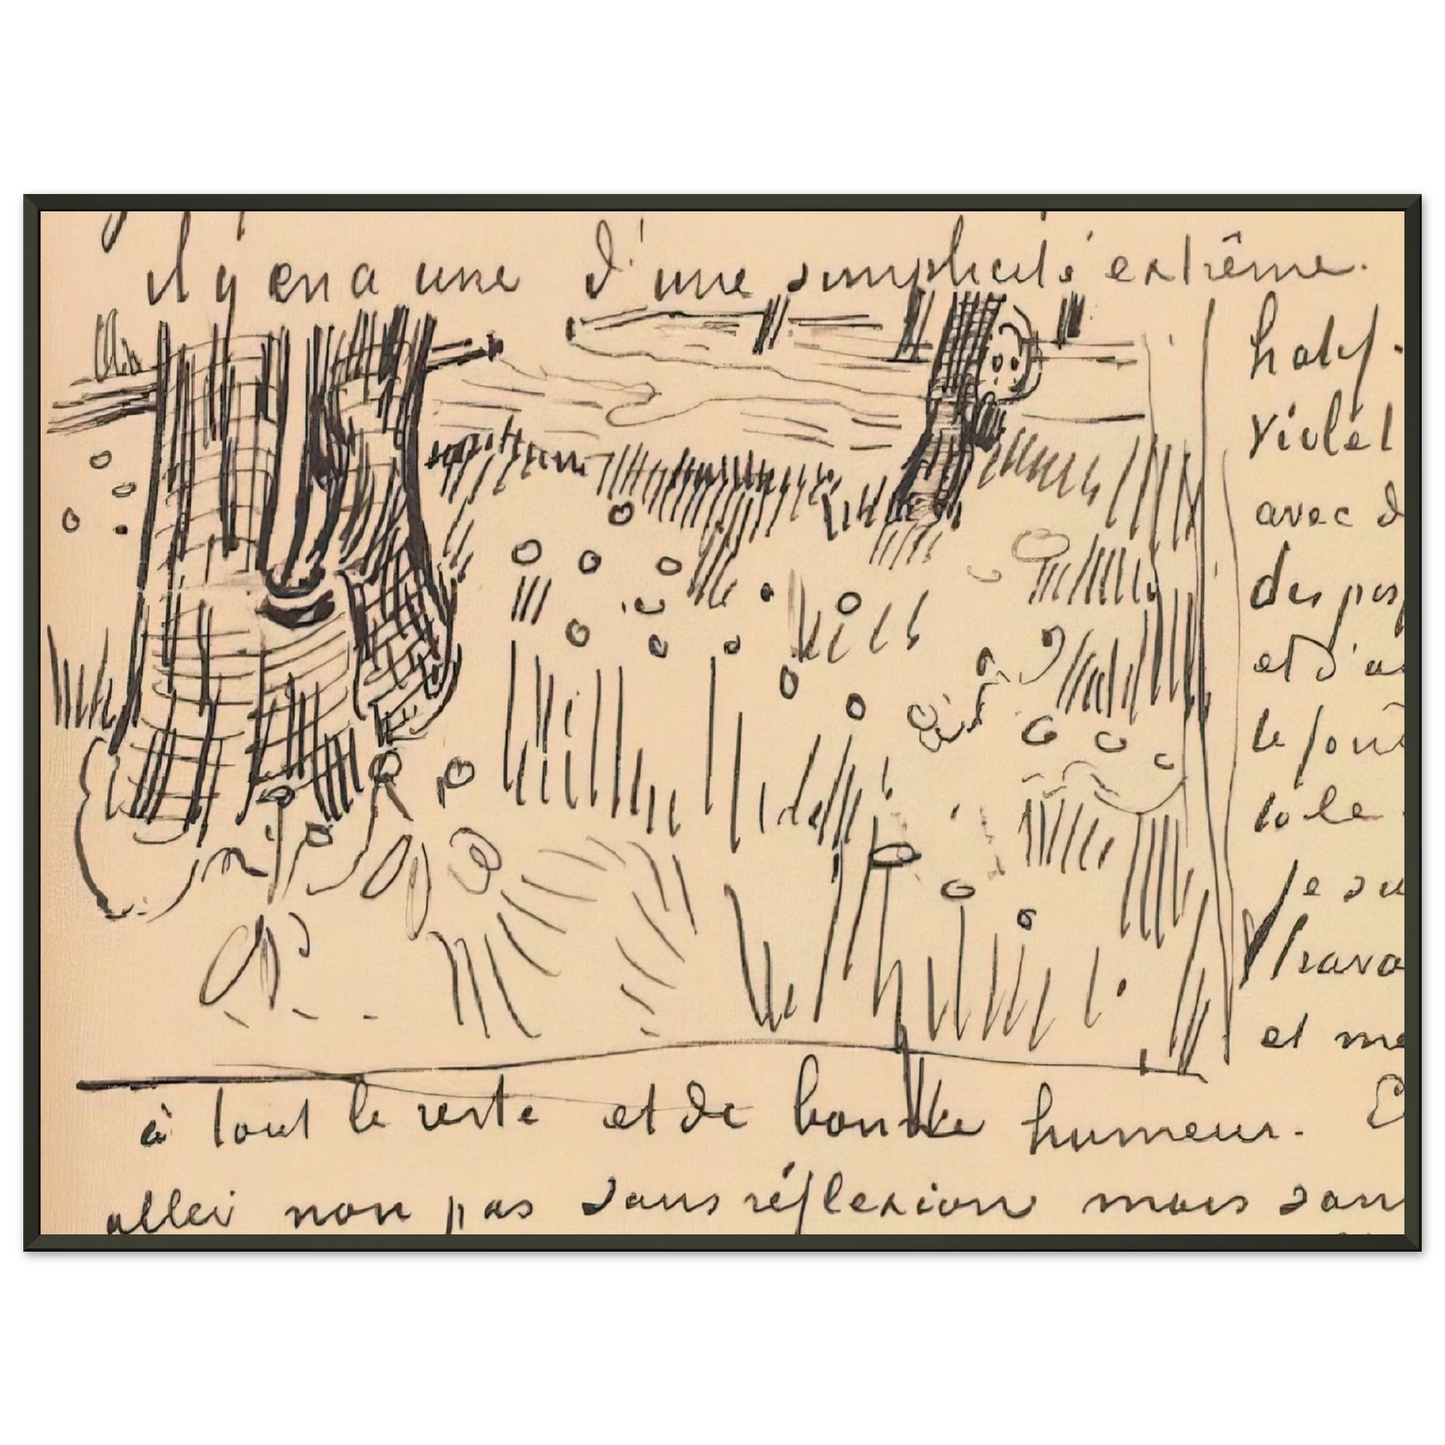 il y en a une d'une simplicité extrême.
violet
avec d
des
et d'u
le
Je su
trava
et me
à tout le reste et de bonne humeur. E
aller non pas sans réflexion mais san